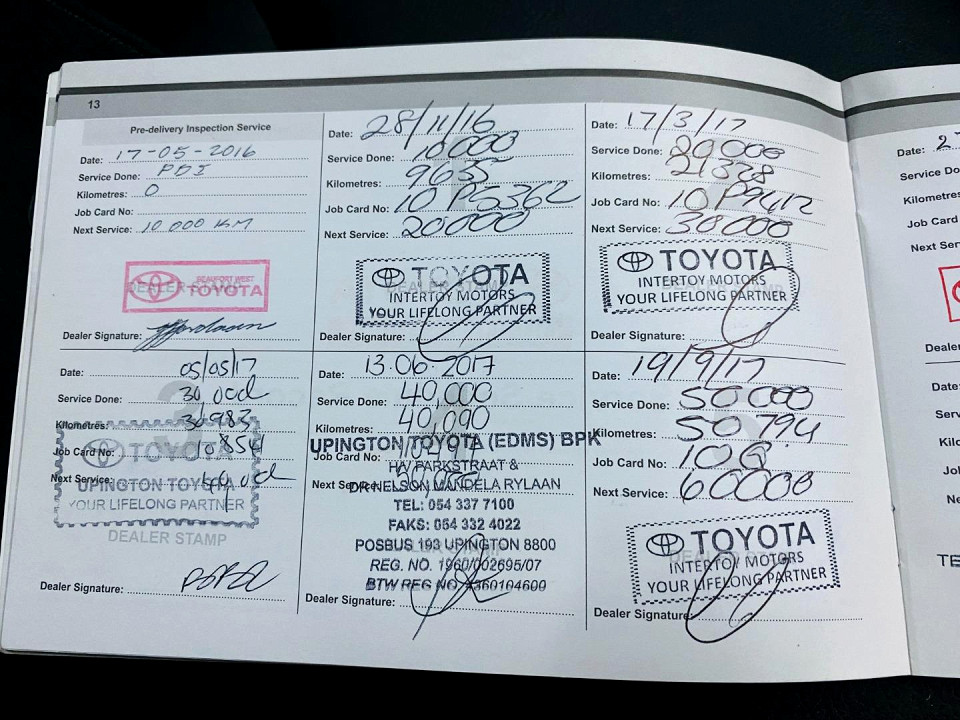 13
Pre-delivery Inspection Service
Date: 17-05-2016
Service Done: PDI
Kilometres: 0
Job Card No:
Next Service: 10 000 KM
DEALER STAMP
BEAUFORT WEST
TOYOTA
Dealer Signature:
Date: 28/11/16
Service Done: 10000
Kilometres: 9655
Job Card No: 10 P5362
Next Service: 20000
TOYOTA
INTERTOY MOTORS
YOUR LIFELONG PARTNER
Dealer Signature:
Date: 17/3/17
Service Done: 20000
Kilometres: 21328
Job Card No: 10
Next Service: 30000
TOYOTA
INTERTOY MOTORS
YOUR LIFELONG PARTNER
Dealer Signature:
Date: 05/05/17
Service Done: 30,000
Kilometres: 30983
Job Card No: 10854
Next Service: 40,000
TOYOTA
UPINGTON TOYOTA
YOUR LIFELONG PARTNER
DEALER STAMP
Dealer Signature:
Date: 13.06.2017
Service Done: 40,000
Kilometres: 40,090
Job Card No:
Next Service:
UPINGTON TOYOTA (EDMS) BPK
H/V PARKSTRAAT &
DR NELSON MANDELA RYLAAN
TEL: 054 337 7100
FAKS: 054 332 4022
POSBUS 193 UPINGTON 8800
REG. NO. 1960/002695/07
BTW REG NO. 4360104600
Dealer Signature:
Date: 19/9/17
Service Done: 50000
Kilometres: 50794
Job Card No: 10Q
Next Service: 60000
TOYOTA
INTERTOY MOTORS
YOUR LIFELONG PARTNER
Dealer Signature:
Date: 2
Service Do
Kilometres
Job Card
Next Serv
Dealer
Date:
Serv
Kilo
Job
Ne
TE
Dea